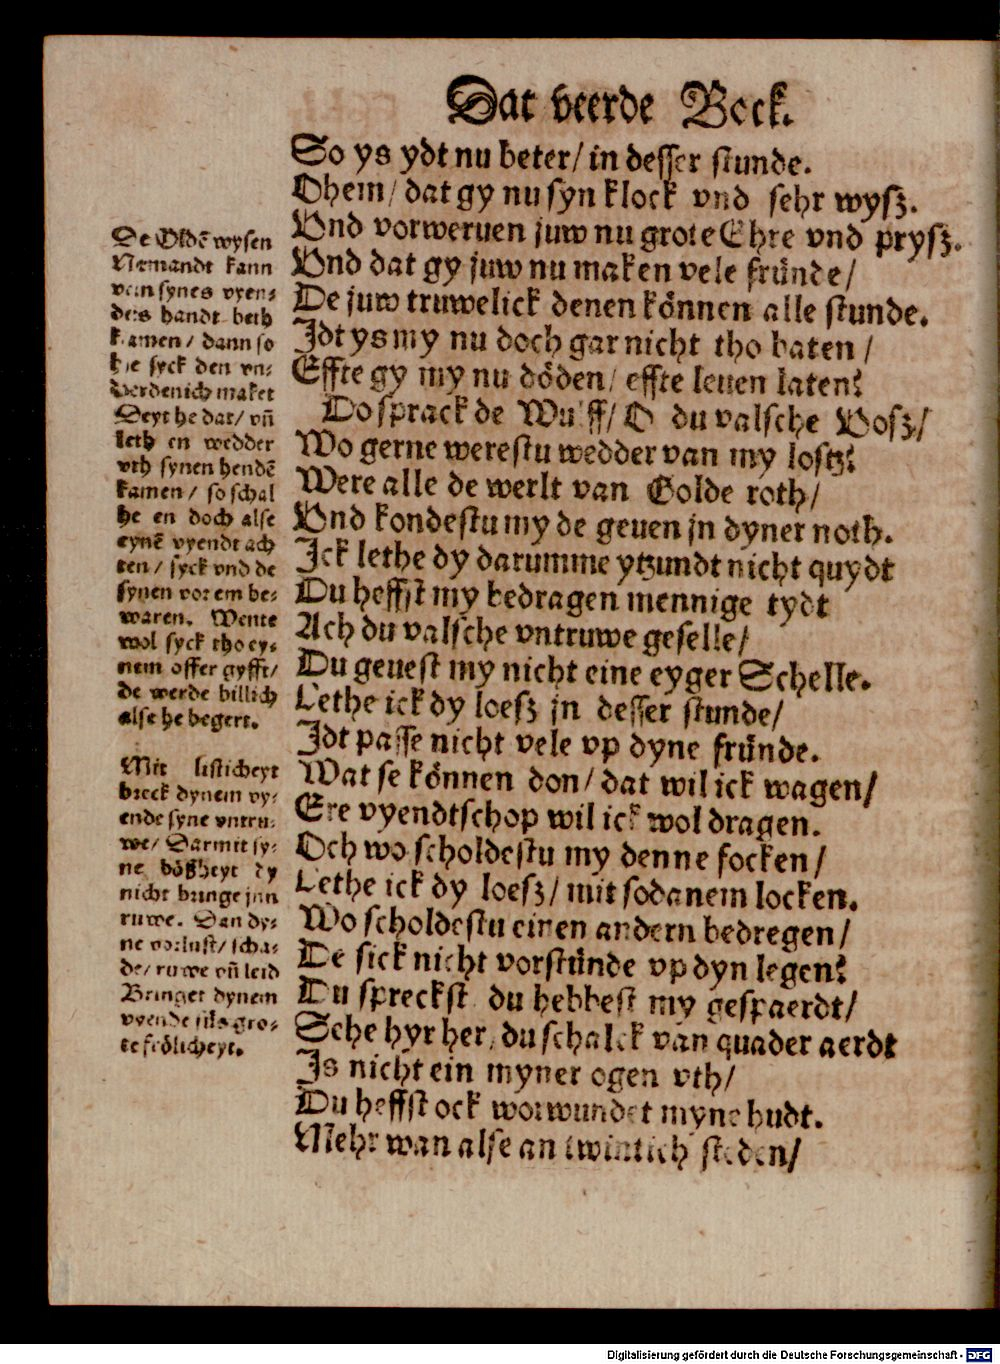 Dat veerde Bock.
So ys ydt nu beter/ in desser stunde.
Ohem/ dat gy nu syn klock vnd sehr wysz.
Vnd vorweruen juw nu grote Ehre vnd prysz.
Vnd dat gy juw nu maken vele fründe/
De juw truwelick denen können alle stunde.
Idt ys my nu doch gar nicht tho baten /
Effte gy my nu döden/ effte leuen laten?
Do sprack de Wulff/ O du valsche Vosz/
Wo gerne werestu wedder van my lostz?
Were alle de werlt van Golde roth/
Vnd kondestu my de geuen jn dyner noth.
Ick lethe dy darumme ytzundt nicht quydt
Du heffst my bedragen mennige tydt
Ach du valsche vntruwe geselle/
Du geuest my nicht eine eyger Schelle.
Lethe ick dy loesz jn desser stunde/
Idt passe nicht vele vp dyne fründe.
Wat se können don/ dat wil ick wagen/
Ere vyendtschop wil ick wol dragen.
Och wo scholdestu my denne focken /
Lethe ick dy loesz/ mit sodanem locken.
Wo scholdestu einen andern bedregen/
De sick nicht vorstünde vp dyn legen?
Du spreckst du hebbest my gespaerdt/
Sche hyr her, du schalck van quader aerdt
Is nicht ein myner ogen vth/
Du heffst ock vorwundet myne hudt.
Mehr wan alse an twintich steden/
De Oldē wysen
Nemandt kann
van synes vyen-
des handt beth
kamen / dann so
he syck den vn-
verdenich maket
Deyt he dat/ vñ
leth en wedder
vth synen hendē
kamen / so schal
he en doch alse
eynē vyendt ach
ten / syck vnd de
synen vor em be-
waren. Wente
wol syck tho ey-
nem offer gyfft/
de werde billich
alse he begert.
Mit listicheyt
breck dynem vy-
ende syne vntru-
we/ Darmit sy-
ne bößheyt dy
nicht bringe jnn
ruwe. Dan dy-
ne vorlust/ scha-
de/ ruwe vñ leid
Bringet dynem
vyende gro-
te frölicheyt.
Digitalisierung gefördert durch die Deutsche Forschungsgemeinschaft - DFG